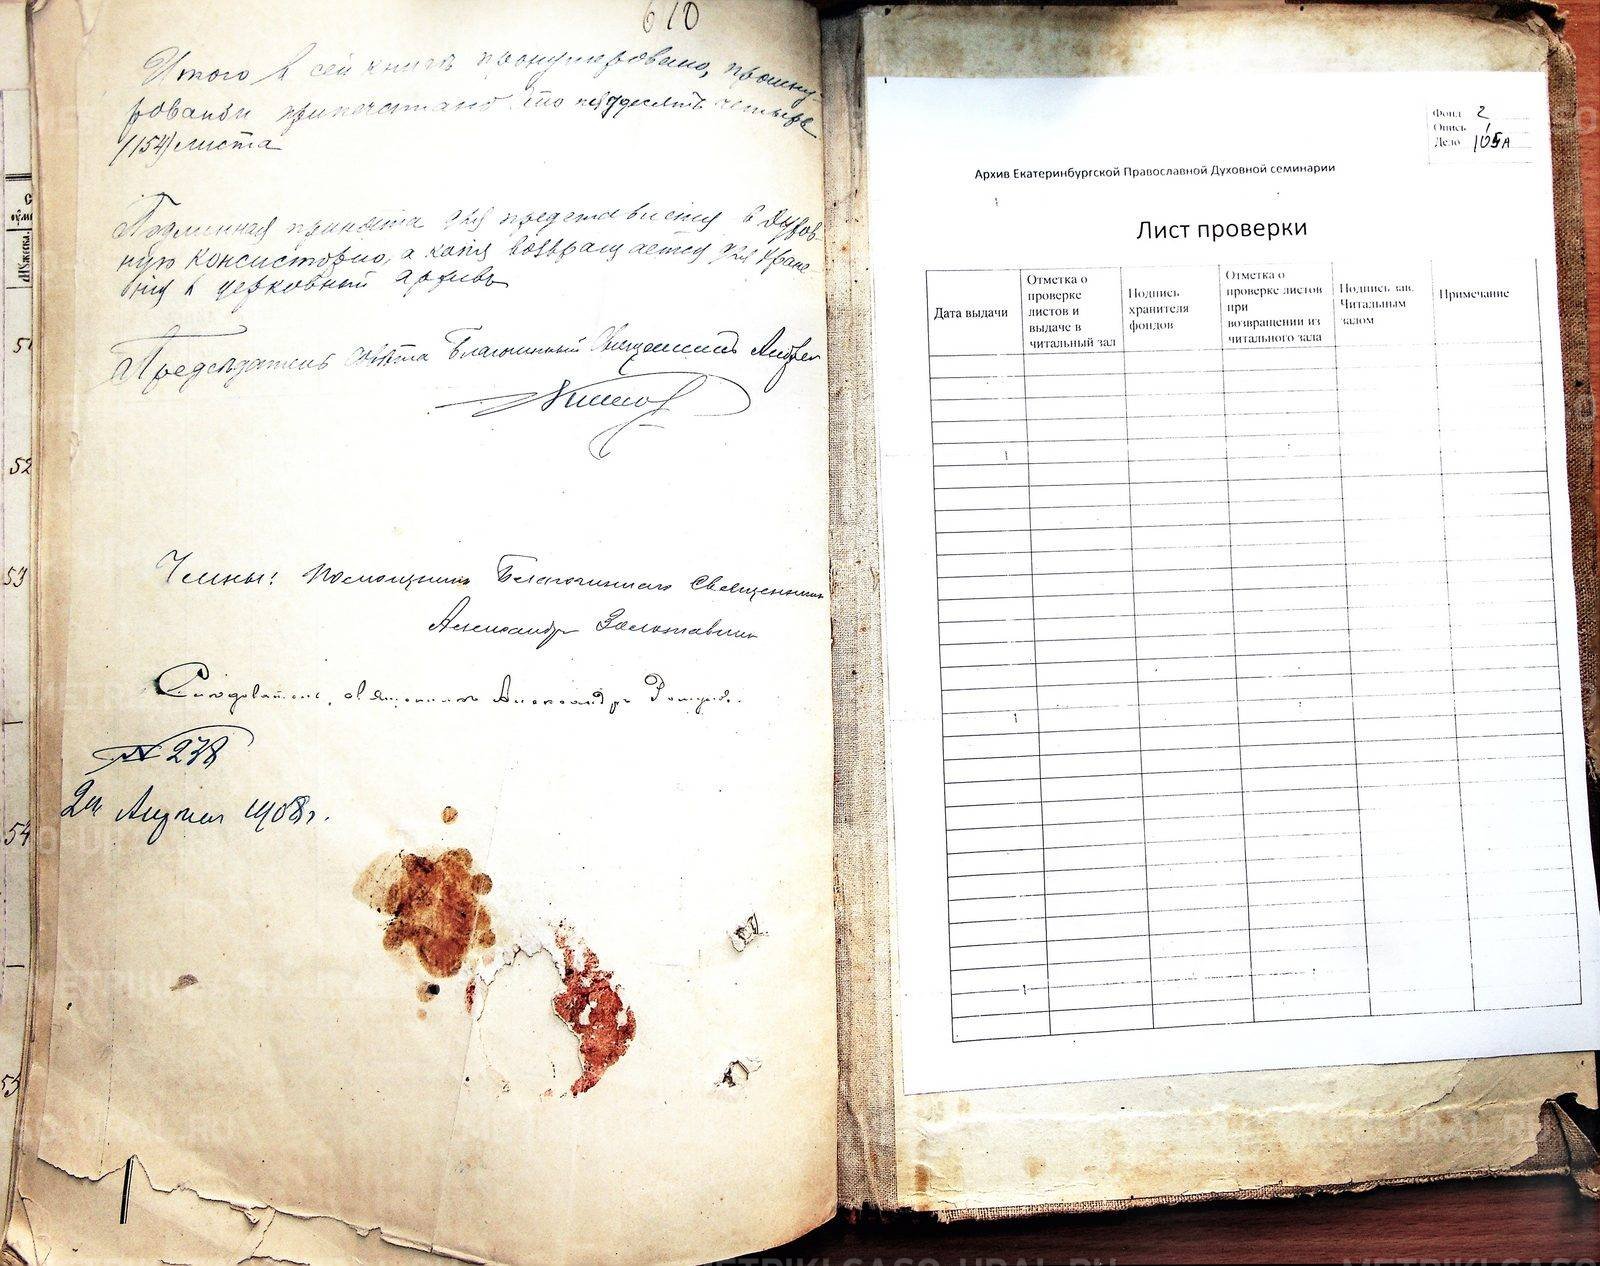 610
Итого в сей книгѣ пронумеровано, прошну-
ровано и припечатано сто пятдесятъ четыре
(154) листа
Подлинная принята для представленія в Духов-
ную консисторію, а копія возвращается для хране-
нія в церковный архивъ
Предсѣдатель совѣта Благочинный Священникъ Андрей
Члены: Помощникъ Благочиннаго Священникъ
Александръ
священникъ Александръ
№ 238
Апреля 1908 г.
51
52
53
54
55
Фонд 2
Опись 1
Дело 105А
Архив Екатеринбургской Православной Духовной семинарии
Лист проверки
Дата выдачи
Отметка о
проверке
листов и
выдаче в
читальный зал
Подпись
хранителя
фондов
Отметка о
проверке листов
при
возвращении из
читального зала
Подпись зав.
Читальным
залом
Примечание
METRIKI.GASO-URAL.RU